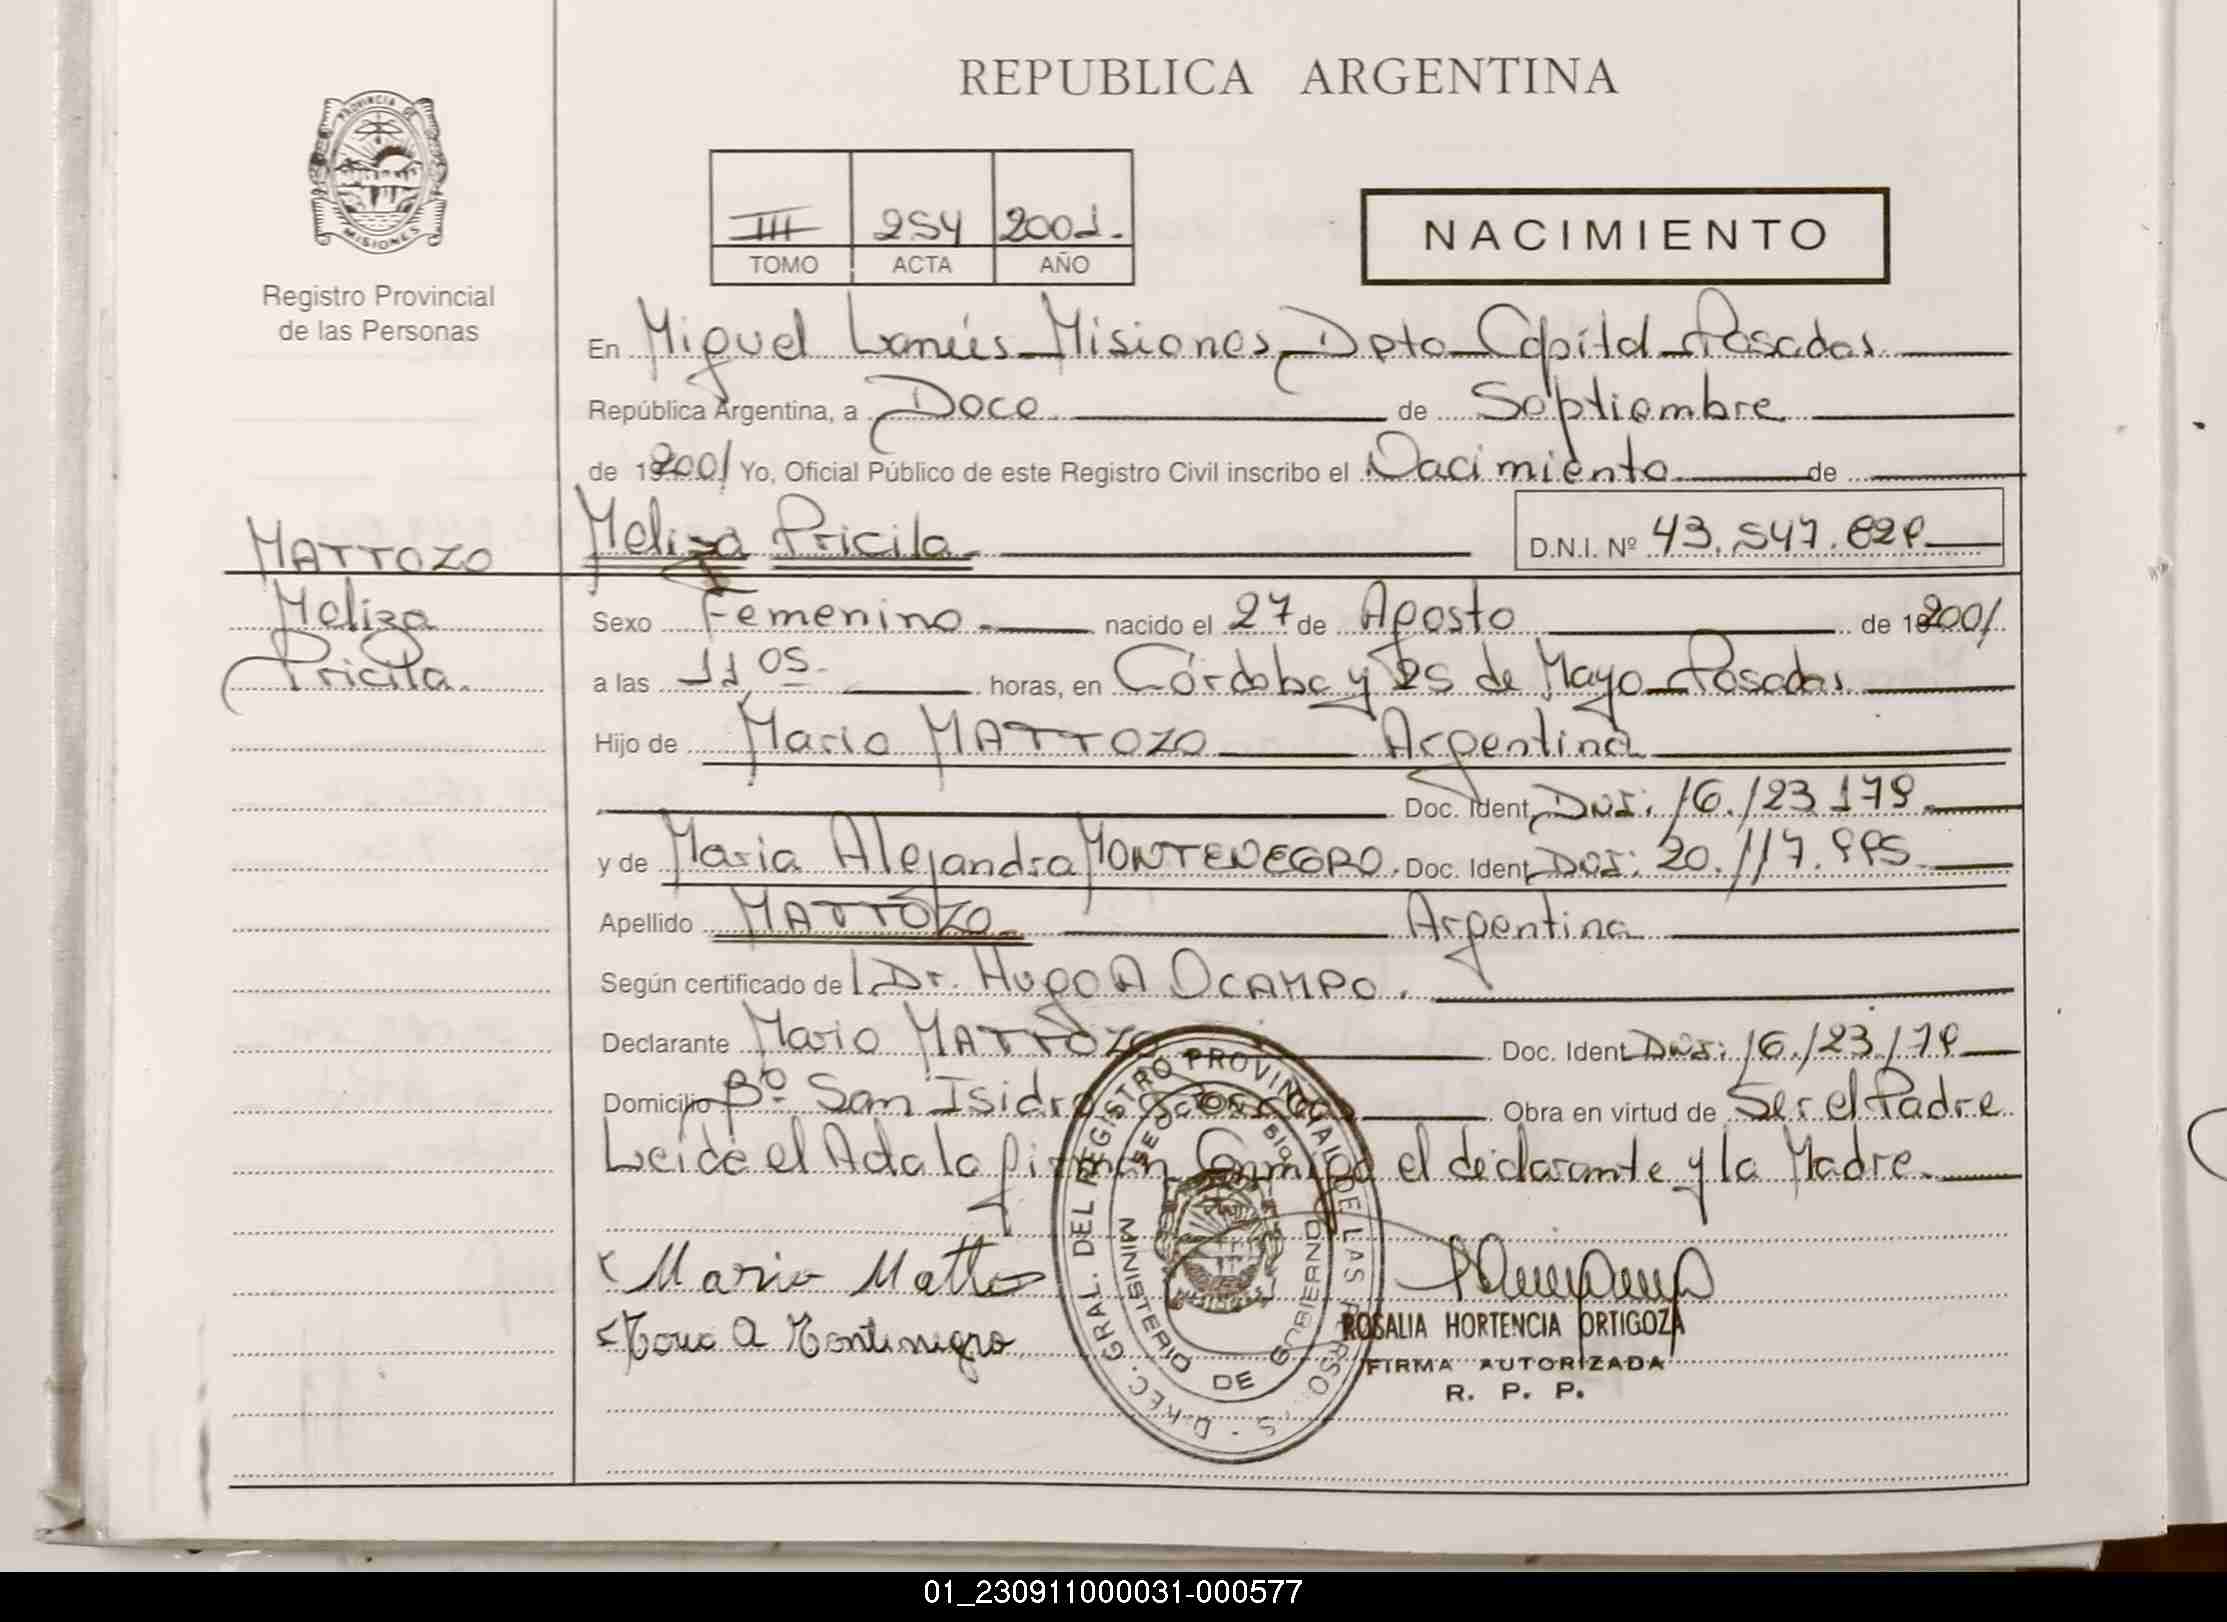 REPUBLICA ARGENTINA
PROVINCIA DE
MISIONES
Registro Provincial
de las Personas
III 254 2001.
TOMO ACTA AÑO
NACIMIENTO
En Miguel Lanús Misiones, Dpto Capital Posadas
República Argentina, a Doce de Septiembre
de 2001 Yo, Oficial Público de este Registro Civil inscribo el Nacimiento de
MATTOZO
Meliza
Pricila.
Meliza Pricila
D.N.I. Nº 43.547.829
Sexo Femenino nacido el 27 de Agosto de 2001
a las 11 05 horas, en Córdoba y 25 de Mayo Posadas
Hijo de Mario MATTOZO Argentina
Doc. Ident. DNI: 16.123.179
y de Maria Alejandra MONTENEGRO. Doc. Ident. DNI: 20.117.995
Apellido MATTOZO Argentina
Según certificado de Dr. Hugo A OCAMPO.
Declarante Mario MATTOZO Doc. Ident. DNI: 16.123.179
Domicilio Bº San Isidro Posadas Obra en virtud de Ser el Padre
Leide el Acta la firman Conmigo el declarante y la Madre.
Mario Matto
Maria A Montenegro
DREC. GRAL. DEL REGISTRO PROVINCIAL DE LAS PERSO
MINISTERIO DE GOBIERNO
ROSALIA HORTENCIA ORTIGOZA
FIRMA AUTORIZADA
R. P. P.
01_230911000031-000577